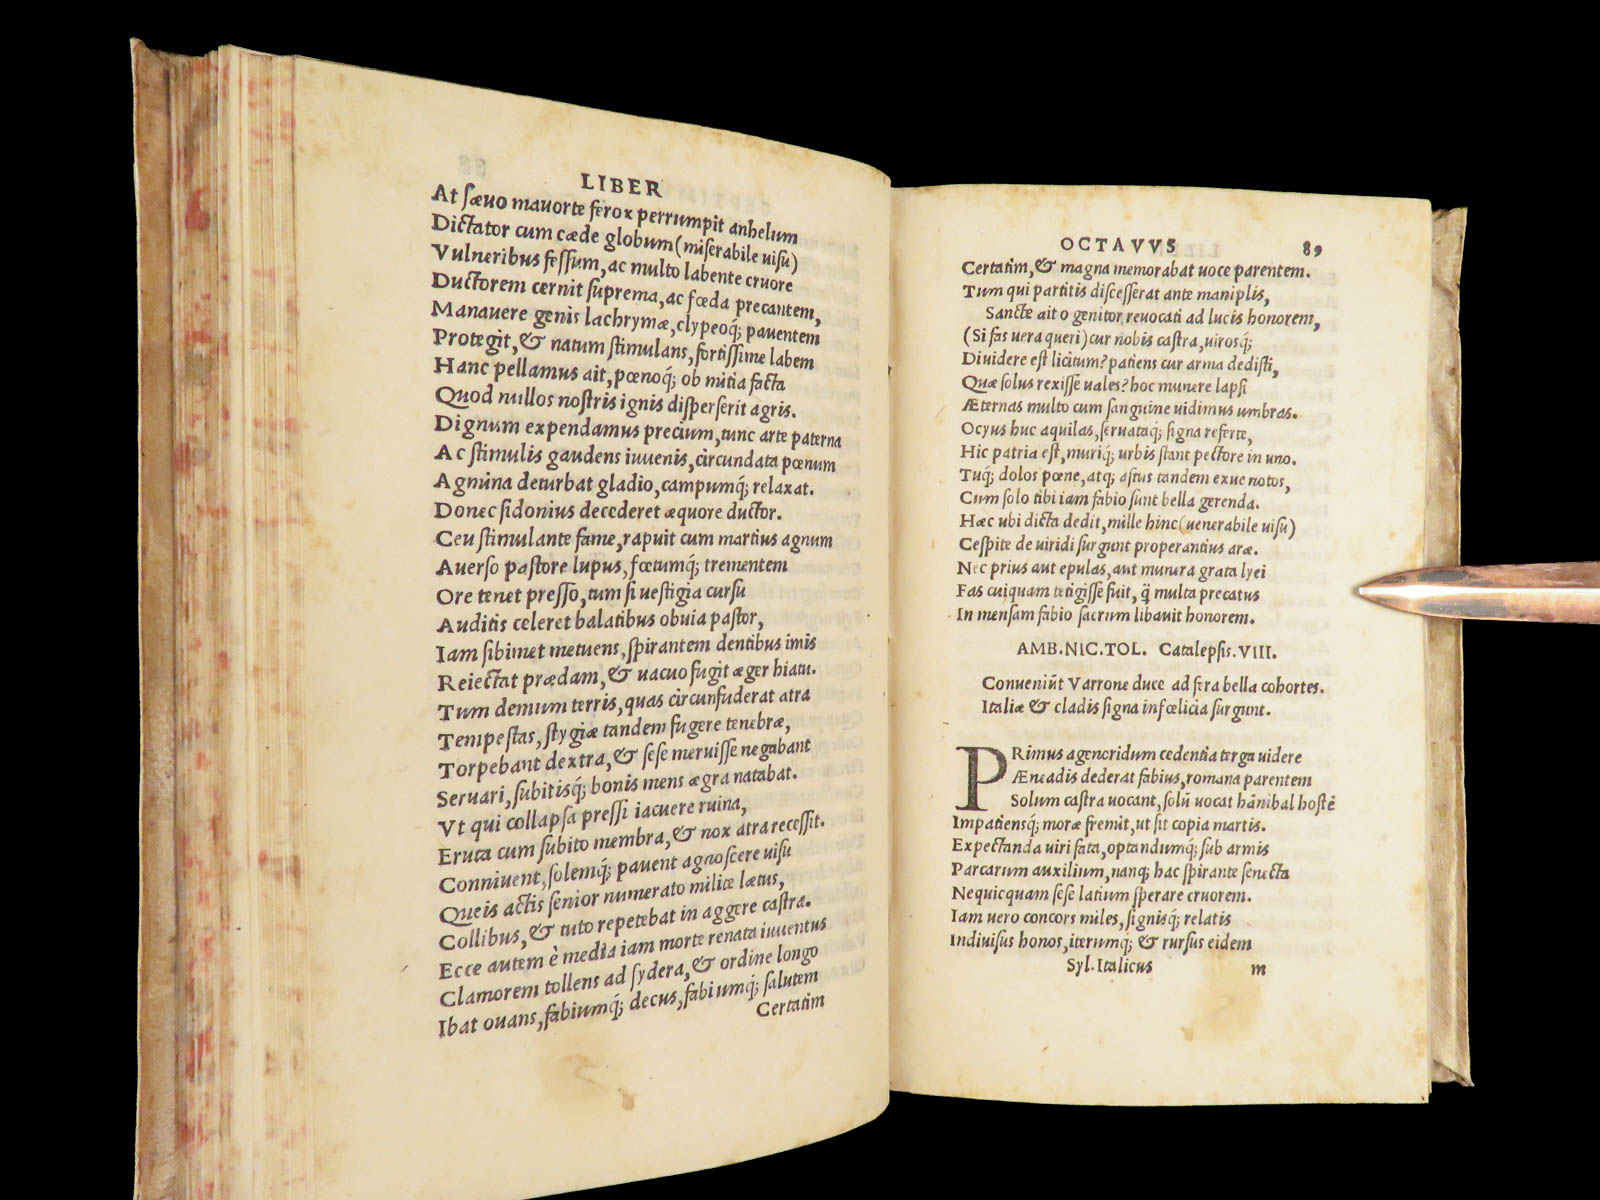 LIBER
At sæuo mauorte ferox perrumpit anhelum
Dictator cum cæde globum (miserabile uisu)
Vulneribus fessum, ac multo labente cruore
Ductorem cernit suprema, ac fœda precantem,
Manauere genis lachrymæ, clypeoq́; pauentem
Protegit, & natum stimulans, fortissime labem
Hanc pellamus ait, pœnoq́; ob mitia facta
Quod nullos nostris ignis disperserit agris.
Dignum expendamus precium, tunc arte paterna
Ac stimulis gaudens iuuenis, circundata pœnum
Agmina deturbat gladio, campumq́; relaxat.
Donec sidonius decederet æquore ductor.
Ceu stimulante fame, rapuit cum martius agnum
Auerso pastore lupus, fœtumq́; trementem
Ore tenet presso, tum si uestigia cursu
Auditis celeret balatibus obuia pastor,
Iam sibimet metuens, spirantem dentibus imis
Reiectat prædam, & uacuo fugit æger hiatu.
Tum demum terris, quas circunfuderat atra
Tempestas, stygiæ tandem fugere tenebræ,
Torpebant dextra, & sese meruisse negabant
Seruari, subitisq́; bonis mens ægra natabat.
Vt qui collapsa pressi iacuere ruina,
Eruta cum subito membra, & nox atra recessit.
Conniuent, solemq́; pauent agnoscere uisu
Queis actis senior numerato milite lætus,
Collibus, & tuto repetebat in aggere castra.
Ecce autem è media iam morte renata iuuentus
Clamorem tollens ad sydera, & ordine longo
Ibat ouans, fabiumq́; decus, fabiumq́; salutem
Certatim
OCTAVVS 89
Certatim, & magna memorabat uoce parentem.
Tum qui partitis discesserat ante maniplis,
Sancte ait o genitor reuocati ad lucis honorem,
(Si fas uera queri) cur nobis castra, uirosq́;
Diuidere est licitum? patiens cur arma dedisti,
Quæ solus rexisse uales? hoc munere lapsi
Æternas multo cum sanguine uidimus umbras.
Ocyus huc aquilas, seruataq́; signa referte,
Hic patria est, muriq́; urbis stant pectore in uno.
Tuq́; dolos pœne, atq; astus tandem exue notos,
Cum solo tibi iam fabio sunt bella gerenda.
Hæc ubi dicta dedit, mille hinc (uenerabile uisu)
Cespite de uiridi surgunt properantius aræ.
Nec prius aut epulas, aut munera grata lyei
Fas cuiquam tetigisse fuit, q̃ multa precatus
In mensam fabio sacrum libauit honorem.
AMB. NIC. TOL. Catalepsis. VIII.
Conueniũt Varrone duce ad fera bella cohortes.
Italiæ & cladis signa infœlicia surgunt.
PRimus agenoridum cedentia terga uidere
Æneadis dederat fabius, romana parentem
Solum castra uocant, solũ uocat hãnibal hostẽ
Impatiensq́; moræ fremit, ut sit copia martis.
Expectanda uiri fata, optandumq́; sub armis
Parcarum auxilium, nanq; hac spirante senecta
Nequicquam sese latium sperare cruorem.
Iam uero concors miles, signisq́; relatis
Indiuisus honos, iterumq́; & rursus eidem
Syl. Italicus m